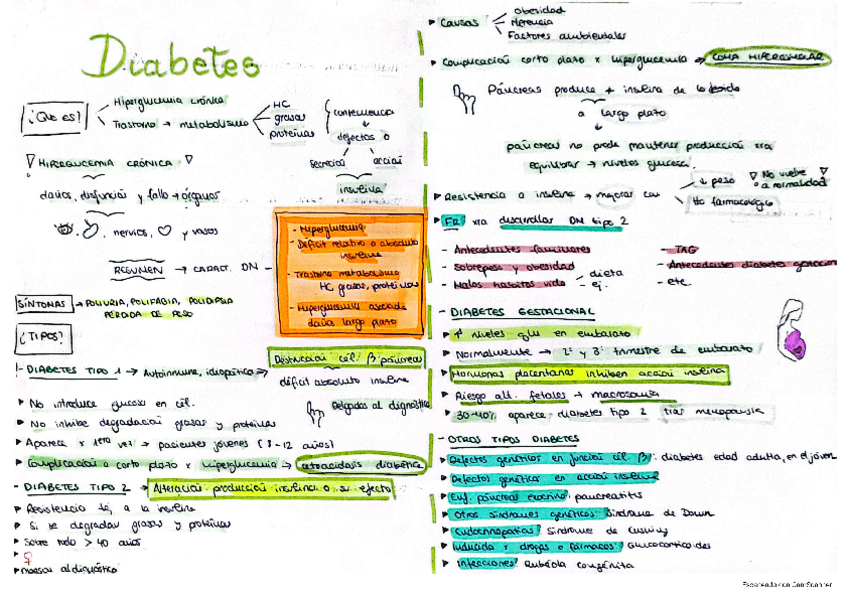 Diabetes
¿Que es?
Hiperglucemia crónica
Trastorno → metabolismo
HC
grasas
proteínas
consecuencia
defectos o
secreción acción
insulina
HIPERGLUCEMIA CRÓNICA
daños, disfunción y fallo → órganos
nervios, y vasos
RESUMEN → CARACT. DM
- Hiperglucemia
- Déficit relativo o absoluto
insulina
- Trastorno metabolismo
HC, grasas, proteínas
- Hiperglucemia asociada
daños largo plazo
SÍNTOMAS → POLIURIA, POLIFAGIA, POLIDIPSIA
PÉRDIDA DE PESO
¿TIPOS?
- DIABETES TIPO 1 → Autoinmune, idiopático → Destrucción cél. β páncreas
déficit absoluto insulina
No introduce glucosa en cél.
No inhibe degradación grasas y proteínas
Delgados al diagnóstico
Aparece x 1era vez → pacientes jóvenes (8-12 años)
Complicación a corto plazo x hiperglucemia → cetoacidosis diabética
- DIABETES TIPO 2 → Alteración producción insulina o su efecto
Resistencia a la insulina
Si se degradan grasas y proteínas
Sobre todo > 40 años
♀
obesos al diagnóstico
Causas
Obesidad
Herencia
Factores ambientales
Complicación corto plazo x hiperglucemia → COMA HIPEROSMOLAR
Páncreas produce + insulina de lo debido
a largo plazo
páncreas no puede mantener producción xra
equilibrar → niveles glucosa.
Resistencia a insulina → mejorar con
↓ peso
No vuelve
a normalidad
tto farmacológico
FR xra desarrollar DM tipo 2
- Antecedentes familiares
- Sobrepeso y obesidad
- Malos hábitos vida
- dieta
- ej.
- TAG
- Antecedentes diabetes gestacion
- etc.
- DIABETES GESTACIONAL
↑ niveles glu en embarazo
Normalmente → 2º y 3º trimestre de embarazo
Hormonas placentarias inhiben acción insulina
Riesgo alt. fetales → macrosomía
30-40% aparece diabetes tipo 2 tras menopausia
- OTROS TIPOS DIABETES
Defectos genéticos en función cél β: diabetes edad adulta, en el jóven
Defectos genéticos en acción insulina
Enf. páncreas exocrino: pancreatitis
Otros síndromes genéticos: Síndrome de Down
Endocrinopatías: Síndrome de Cushing
Inducida x drogas o fármacos: Glucocorticoides
Infecciones: Rubéola congénita
Escaneado con CamScanner